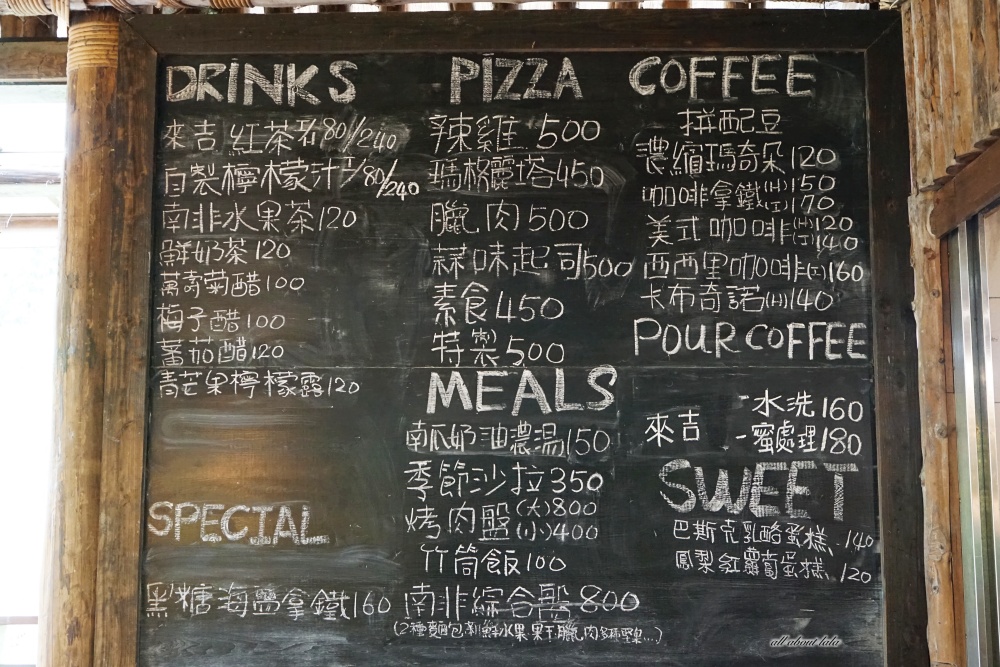 DRINKS
來吉紅茶 80/240
自製檸檬汁 80/240
南非水果茶120
鮮奶茶120
萬壽菊醋100
梅子醋100
蕃茄醋120
青芒果檸檬露120
SPECIAL
黑糖海鹽拿鐵160
PIZZA
辣雞 500
瑪格麗塔450
臘肉500
蒜味起司500
素食450
特製500
MEALS
南瓜奶油濃湯150
季節沙拉350
烤肉盤(大)800
(小)400
竹筒飯100
南非綜合盤800
(2種麵包新鮮水果果干臘肉
COFFEE
拼配豆
濃縮瑪奇朵120
咖啡拿鐵(H)150
(I)170
美式咖啡(H)120
(I)140
西西里咖啡(I)160
卡布奇諾(H)140
POUR COFFEE
來吉
-水洗160
-蜜處理180
SWEET
巴斯克乳酪蛋糕 140
鳳梨紅蘿蔔蛋糕 120
all about lulu